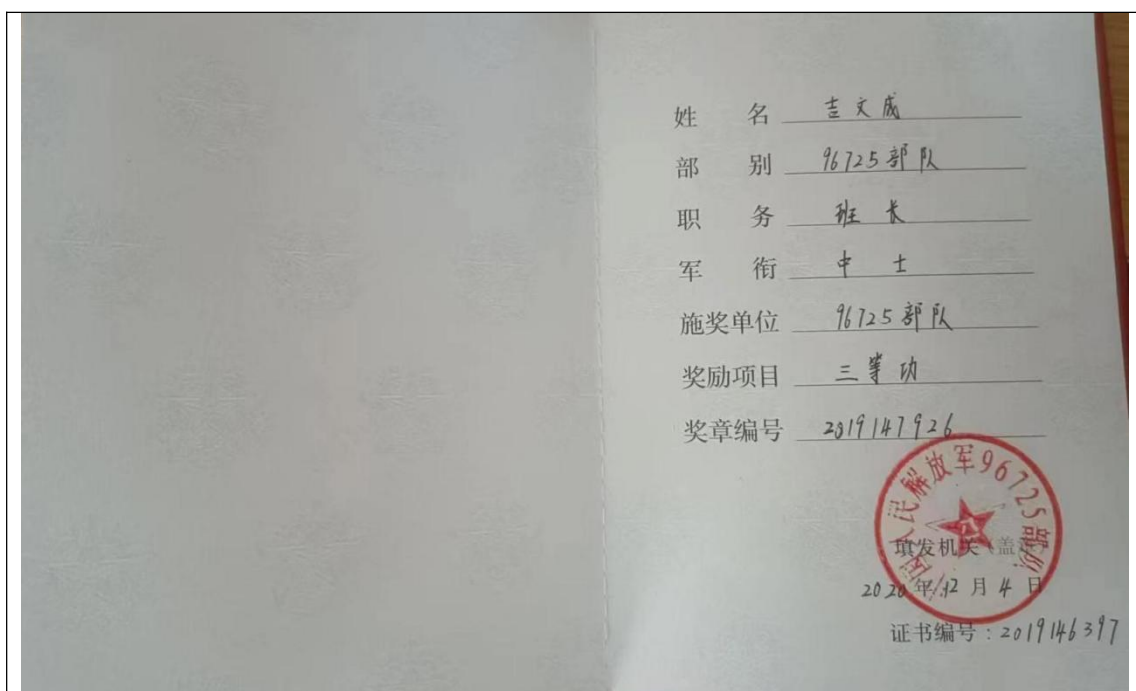 姓 名 吉文成
部 别 96725部队
职 务 班长
军 衔 中士
施奖单位 96725部队
奖励项目 三等功
奖章编号 2019147926
中国人民解放军96725部队
填发机关（盖章）
2020年12月4日
证书编号：2019146397